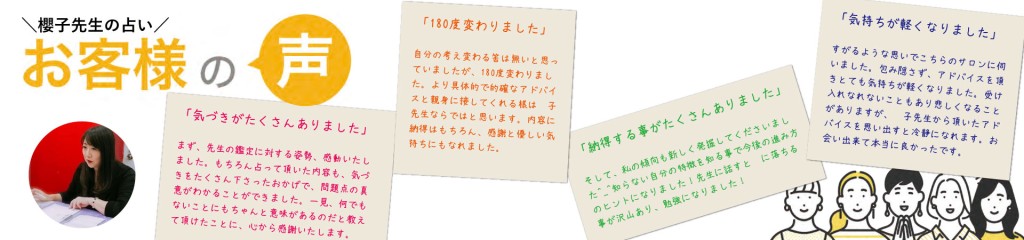 ＼櫻子先生の占い／
お客様の声
「気づきがたくさんありました」
まず、先生の鑑定に対する姿勢、感動いたし
ました。もちろん占って頂いた内容も、気づ
きをたくさん下さったおかげで、問題点の真
意がわかることができました。一見、何でも
ないことにもちゃんと意味があるのだと教え
て頂けたことに、心から感謝いたします。
「180度変わりました」
自分の考え変わる筈は無いと思っ
ていましたが、180度変わりまし
た。より具体的で的確なアドバイ
スと親身に接してくれる様は　子
先生ならではと思います。内容に
納得はもちろん、感謝と優しい気
持ちにもなれました。
「納得する事がたくさんありました」
そして、私の傾向も新しく発掘してくださいまし
た^_^知らない自分の特徴を知る事で今後の進み方
のヒントになりました！先生に話すと　に落ちる
事が沢山あり、勉強になりました！
「気持ちが軽くなりました」
すがるような思いでこちらのサロンに伺
いました。包み隠さず、アドバイスを頂
きとても気持ちが軽くなりました。受け
入れなれないこともあり悲しくなること
がありますが、　子先生から頂いたアド
バイスを思い出すと冷静になれます。お
会い出来て本当に良かったです。